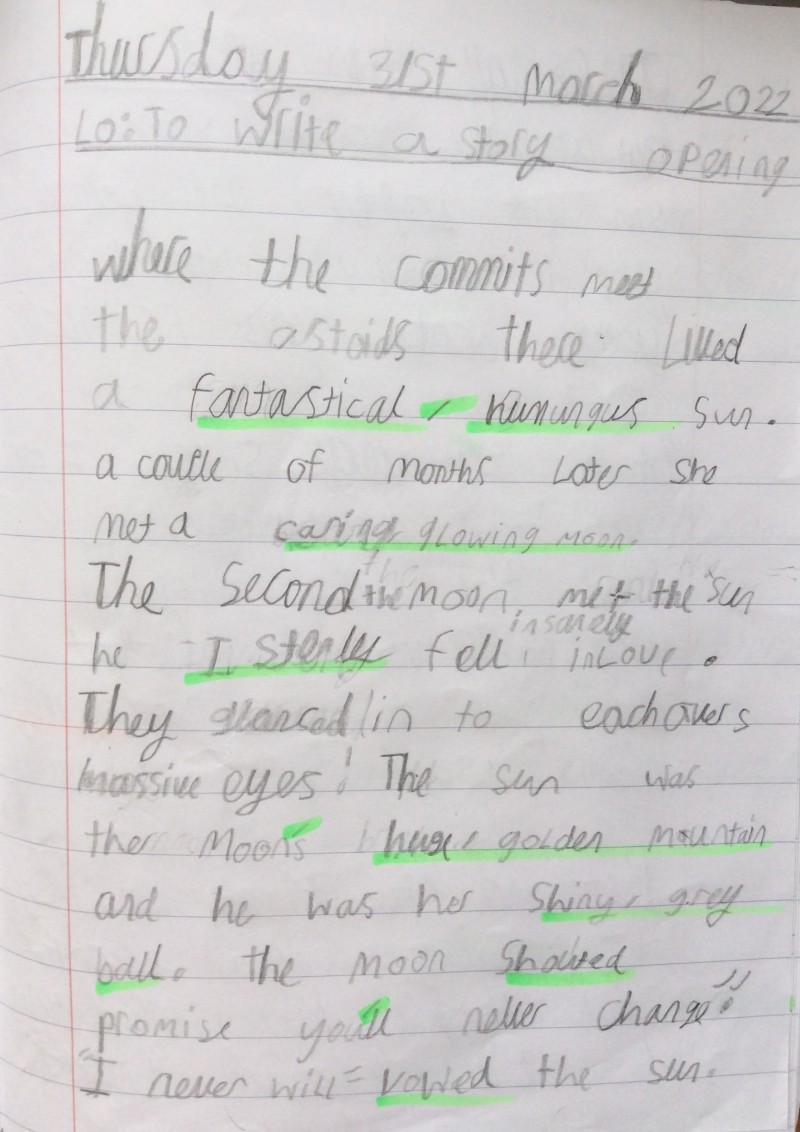 Thursday 31st march 2022
Lo: To write a story opening
where the commits meet
the astoids there Lived
a fantastical, Humungus sun.
a couple of months Later she
met a caring, glowing moon.
The Second the moon met the sun
insanely
he fell in Love.
They glanced in to each overs
massive eyes! The sun was
the Moon's huge, golden mountain
and he was her Shiny, grey
ball. the moon Shouted
promise you'll never change!"
"I never will" vowed the sun.